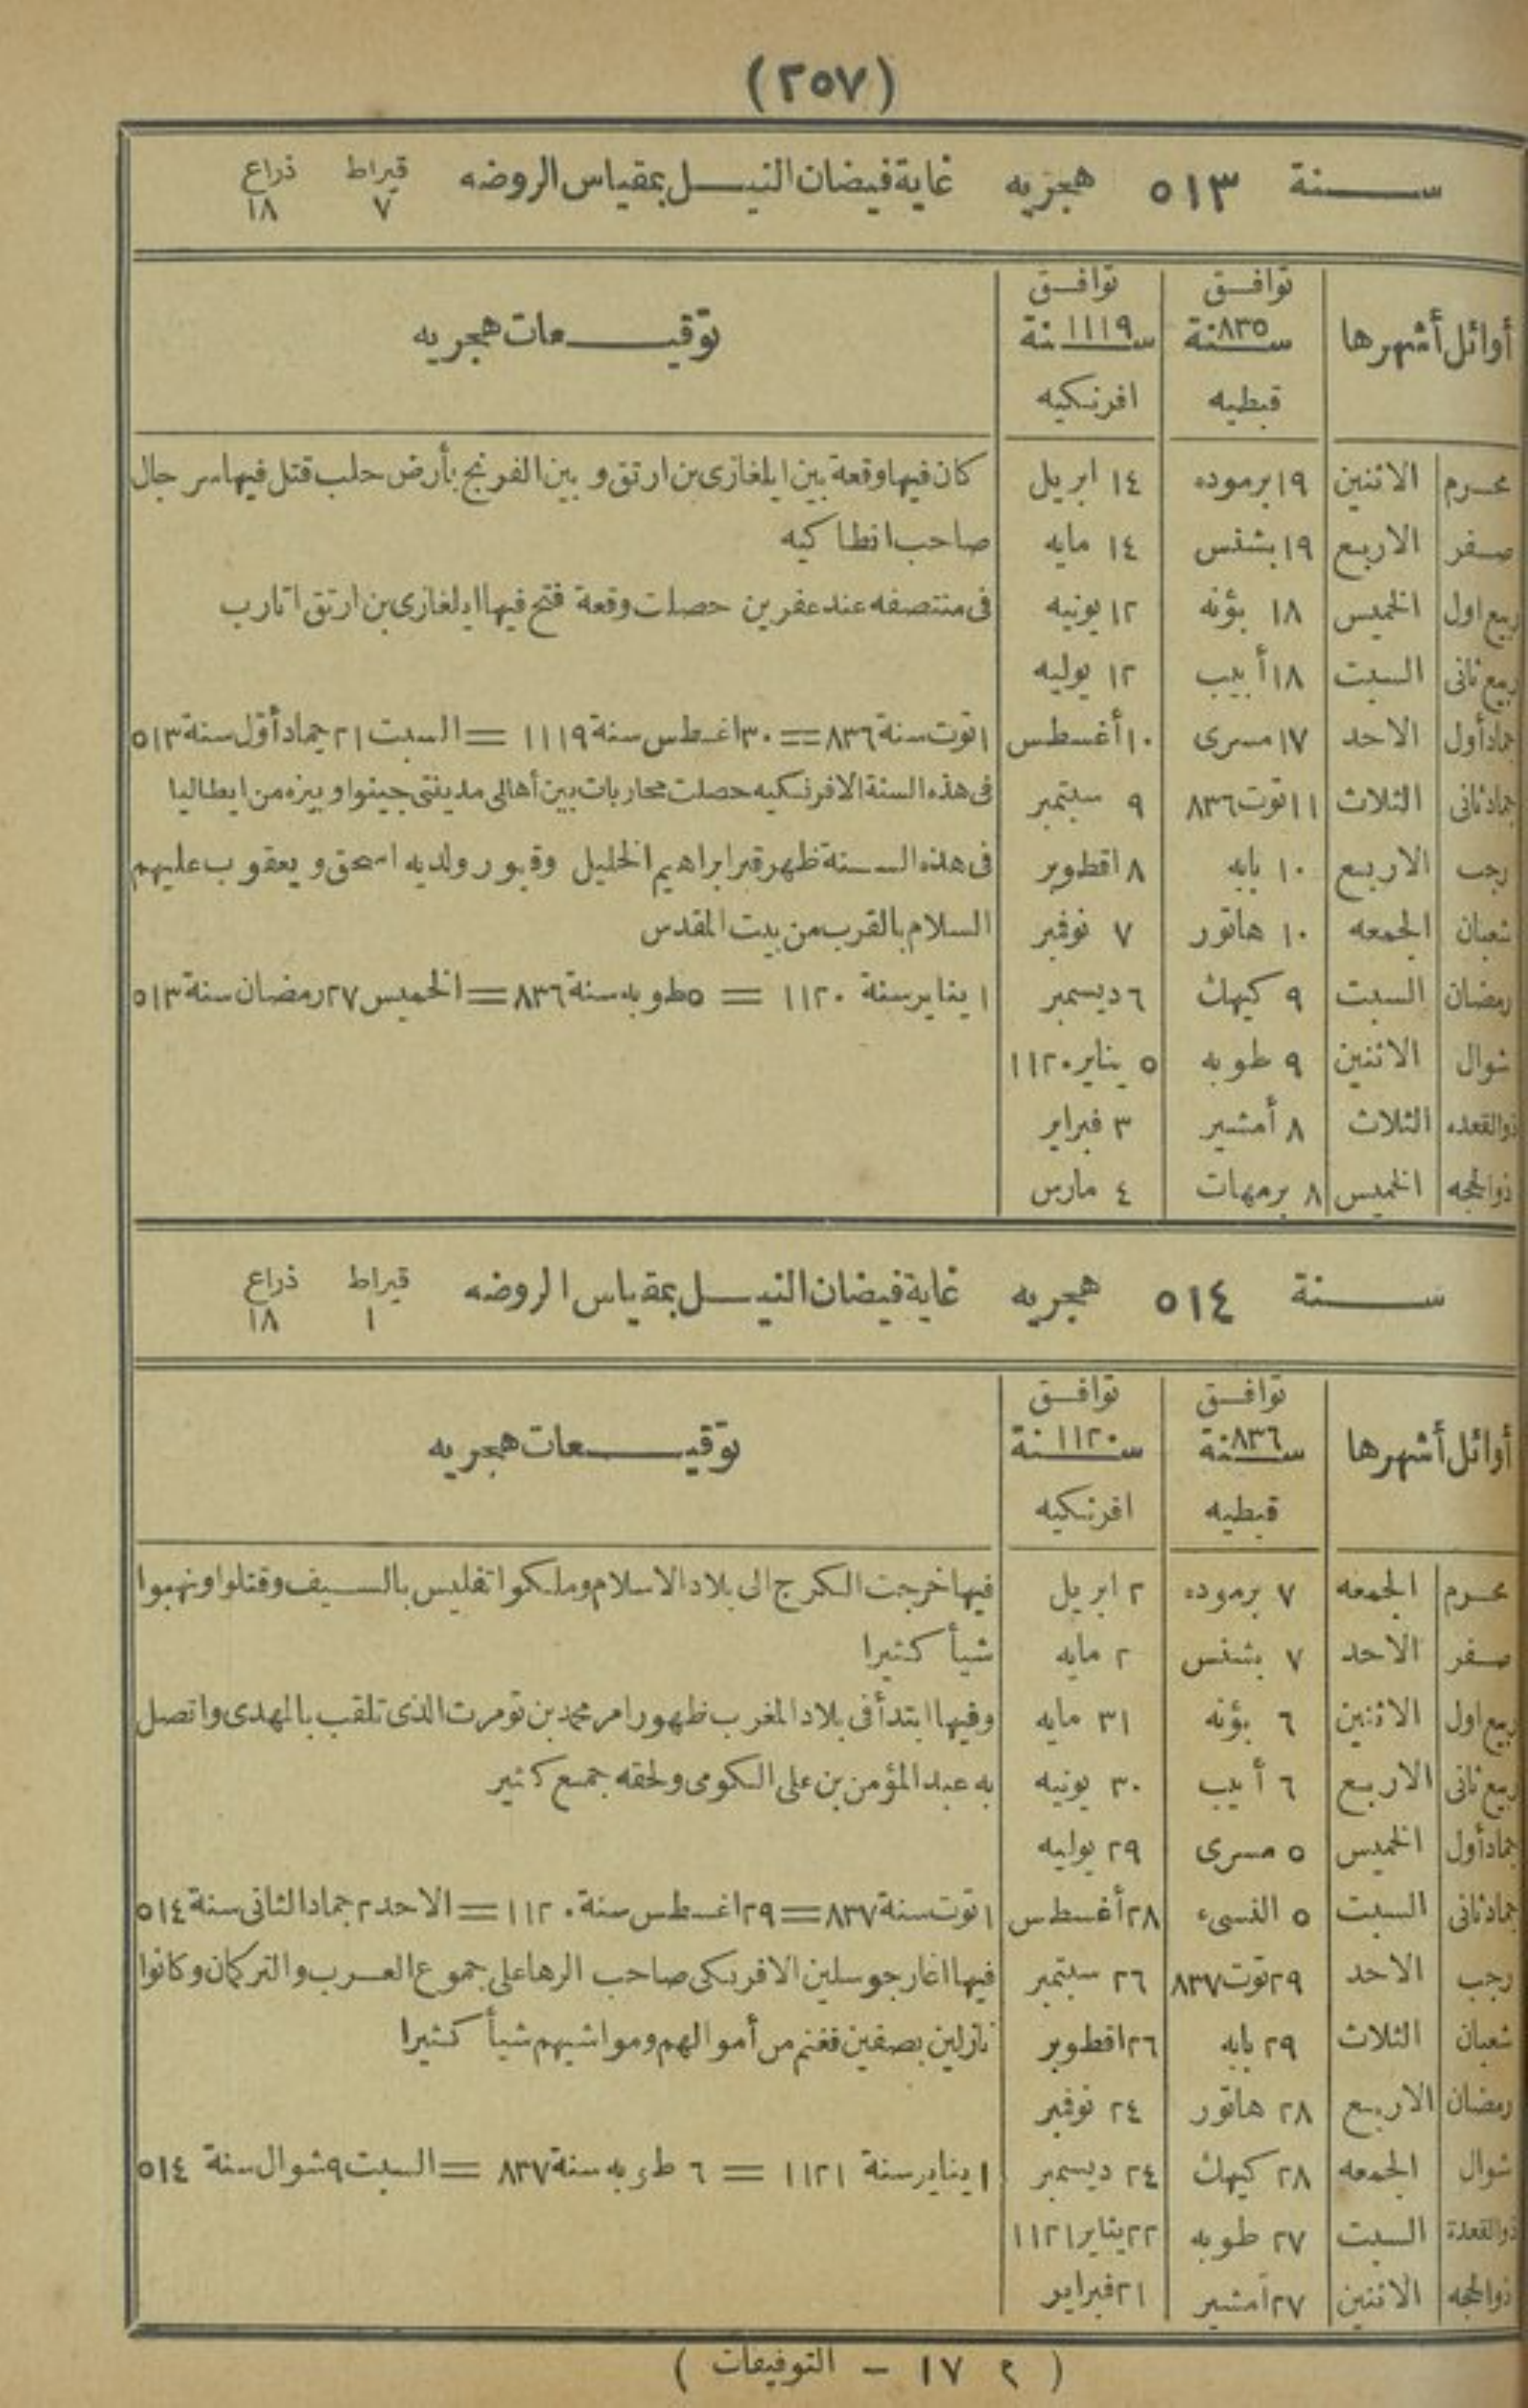 (٢٥٧)
ســـنة ٥١٣ هجريه غاية فيضان النيـــل بمقياس الروضه قيراط ذراع
٧ ١٨
أوائل أشهرها توافـق توافـق توقيـــعات هجريه
سـ٨٣٥ـنة سـ١١١٩ـنة
قبطيه افرنكيه
محـرم الاثنين ١٩ برموده ١٤ ابريل كان فيها وقعة بين ايلغازى بن ارتق و بين الفرنج بأرض حلب قتل فيها سرجال
صـفر الاربع ١٩ بشنس ١٤ مايه صاحب انطاكيه
ربيع اول الخميس ١٨ بؤنه ١٢ يونيه فى منتصفه عند عفرين حصلت وقعة فتح فيها ايلغازى بن ارتق اتارب
ربيع ثانى السبت ١٨ أبيب ١٢ يوليه
جماد أول الاحد ١٧ مسرى ١٠ أغسطس ١ توت سنة ٨٣٦ = ٣٠ اغسطس سنة ١١١٩ = السبت ٢١ جماد أوّل سنة ٥١٣
جماد ثانى الثلاث ١١ توت ٨٣٦ ٩ سبتمبر فى هذه السنة الافرنكيه حصلت محاربات بين أهالى مدينتى جينوا و بيزه من ايطاليا
رجب الاربع ١٠ بابه ٨ اقطوبر فى هذه الســنة ظهر قبر ابراهيم الخليل وقبور ولديه اسحق و يعقوب عليهم
شعبان الجمعه ١٠ هاتور ٧ نوفمبر السلام بالقرب من بيت المقدس
رمضان السبت ٩ كيهك ٦ ديسمبر ١ يناير سنة ١١٢٠ = ٥ طوبه سنة ٨٣٦ = الخميس ٢٧ رمضان سنة ٥١٣
شوال الاثنين ٩ طوبه ٥ يناير ١١٢٠
ذوالقعده الثلاث ٨ أمشير ٣ فبراير
ذوالحجه الخميس ٨ برمهات ٤ مارس
ســـنة ٥١٤ هجريه غاية فيضان النيـــل بمقياس الروضه قيراط ذراع
١ ١٨
أوائل أشهرها توافـق توافـق توقيـــعات هجريه
سـ٨٣٦ـنة سـ١١٢٠ـنة
قبطيه افرنكيه
محـرم الجمعه ٧ برموده ٢ ابريل فيها خرجت الكرج الى بلاد الاسلام وملكوا تفليس بالسـيف وقتلوا ونهبوا
صـفر الاحد ٧ بشنس ٢ مايه شيأ كثيرا
ربيع اول الاثنين ٦ بؤنه ٣١ مايه وفيها ابتدأ فى بلاد المغرب ظهور امر محمد بن تومرت الذى تلقب بالمهدى واتصل
ربيع ثانى الاربع ٦ أبيب ٣٠ يونيه به عبد المؤمن بن على الكومى ولحقه جمـع كثير
جماد أول الخميس ٥ مسرى ٢٩ يوليه
جماد ثانى السبت ٥ النسىء ٢٨ أغسطس ١ توت سنة ٨٣٧ = ٢٩ اغسطس سنة ١١٢٠ = الاحد ٢ جماد الثانى سنة ٥١٤
رجب الاحد ٢٩ توت ٨٣٧ ٢٦ سبتمبر فيها اغار جوسلين الافرنكى صاحب الرها على جموع العـرب والتركمان وكانوا
شعبان الثلاث ٢٩ بابه ٢٦ اقطوبر نازلين بصفين فغنم من أموالهم ومواشيهم شيأ كثيرا
رمضان الاربع ٢٨ هاتور ٢٤ نوفمبر
شوال الجمعه ٢٨ كيهك ٢٤ ديسمبر ١ يناير سنة ١١٢١ = ٦ طوبه سنة ٨٣٧ = السبت ٩ شوال سنة ٥١٤
ذوالقعدة السبت ٢٧ طوبه ٢٢ يناير ١١٢١
ذوالحجه الاثنين ٢٧ أمشير ٢١ فبراير
( ٢ ١٧ – التوفيقات )